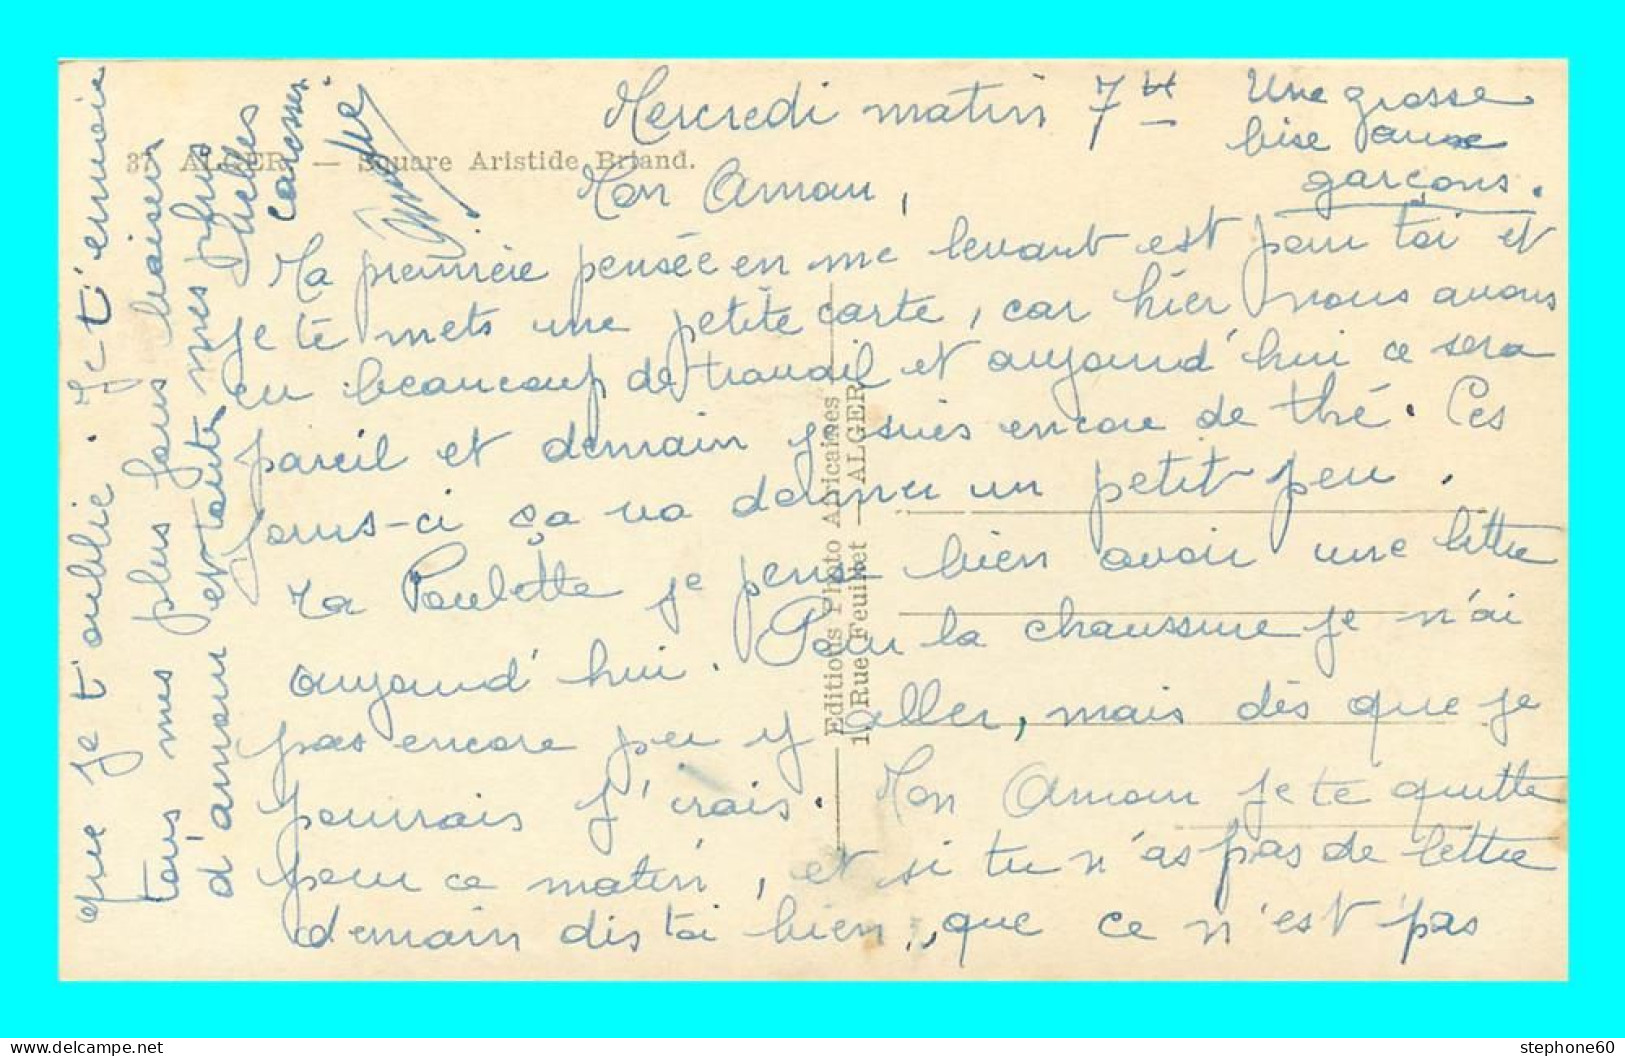 Mercredi matin 7ht
Une grosse
bise aux
garçons.
37 ALGER. — Square Aristide Briand.
Mon Amour,
Ma première pensée en me levant est pour toi et
je te mets une petite carte, car hier nous avons
eu beaucoup de travail et aujourd'hui ce sera
pareil et demain je suis encore de thé. Ces
jours-ci ça va donner un petit peu.
Ma Paulette je pense bien avoir une lettre
aujourd'hui. Pour la chaussure je n'ai
pas encore pu y aller, mais dès que je
pourrais j'irais. Mon Amour je te quitte
pour ce matin, et si tu n'as pas de lettre
demain dis toi bien, que ce n'est pas
que je t'oublie. Je t'envoie
tous mes plus fous baisers
d'amour et toutes mes plus
belles
caresses.
Editions Photo Africaines
1, Rue Feuillet — ALGER
stephone60